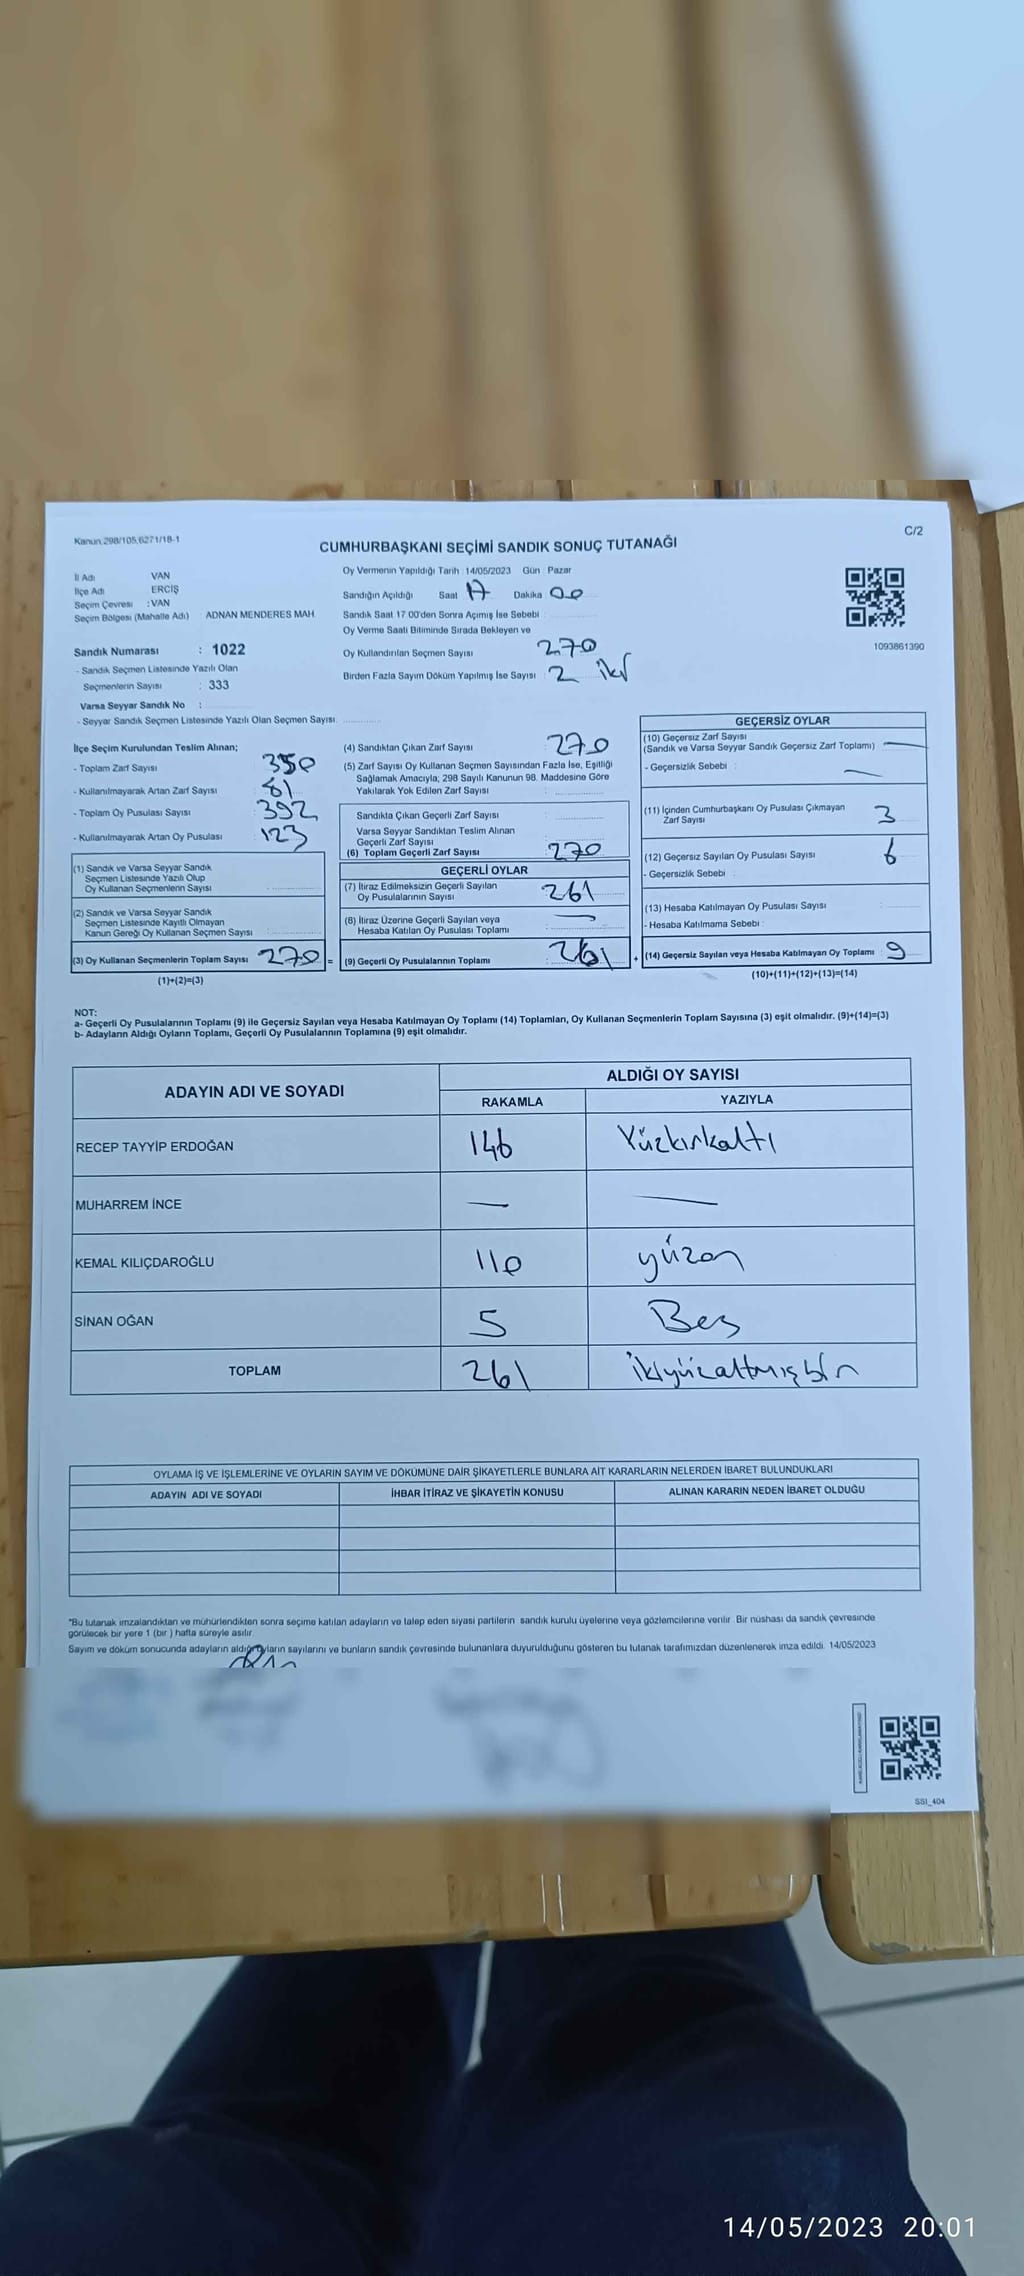 Kanun:298/105,6271/18-1
C/2
CUMHURBAŞKANI SEÇİMİ SANDIK SONUÇ TUTANAĞI
İl Adı VAN
İlçe Adı ERCİŞ
Seçim Çevresi : VAN
Seçim Bölgesi (Mahalle Adı) ADNAN MENDERES MAH.
Sandık Numarası : 1022
- Sandık Seçmen Listesinde Yazılı Olan
Seçmenlerin Sayısı : 333
Varsa Seyyar Sandık No :
- Seyyar Sandık Seçmen Listesinde Yazılı Olan Seçmen Sayısı:
Oy Vermenin Yapıldığı Tarih : 14/05/2023 Gün : Pazar
Sandığın Açıldığı Saat 17 Dakika 00
Sandık Saat 17:00'den Sonra Açımış İse Sebebi
Oy Verme Saati Bitiminde Sırada Bekleyen ve
Oy Kullandırılan Seçmen Sayısı 270
Birden Fazla Sayım Döküm Yapılmış İse Sayısı : 2 iki
1093861390
İlçe Seçim Kurulundan Teslim Alınan;
- Toplam Zarf Sayısı 350
- Kullanılmayarak Artan Zarf Sayısı 81
- Toplam Oy Pusulası Sayısı 392
- Kullanılmayarak Artan Oy Pusulası 123
(1) Sandık ve Varsa Seyyar Sandık
Seçmen Listesinde Yazılı Olup
Oy Kullanan Seçmenlerin Sayısı
(2) Sandık ve Varsa Seyyar Sandık
Seçmen Listesinde Kayıtlı Olmayan
Kanun Gereği Oy Kullanan Seçmen Sayısı
(3) Oy Kullanan Seçmenlerin Toplam Sayısı 270 =
(1)+(2)=(3)
(4) Sandıktan Çıkan Zarf Sayısı : 270
(5) Zarf Sayısı Oy Kullanan Seçmen Sayısından Fazla İse, Eşitliği
Sağlamak Amacıyla; 298 Sayılı Kanunun 98. Maddesine Göre
Yakılarak Yok Edilen Zarf Sayısı :
Sandıkta Çıkan Geçerli Zarf Sayısı
Varsa Seyyar Sandıktan Teslim Alınan
Geçerli Zarf Sayısı
(6) Toplam Geçerli Zarf Sayısı 270
GEÇERLİ OYLAR
(7) İtiraz Edilmeksizin Geçerli Sayılan
Oy Pusulalarının Sayısı 261
(8) İtiraz Üzerine Geçerli Sayılan veya
Hesaba Katılan Oy Pusulası Toplamı —
(9) Geçerli Oy Pusulalarının Toplamı 261 +
GEÇERSİZ OYLAR
(10) Geçersiz Zarf Sayısı
(Sandık ve Varsa Seyyar Sandık Geçersiz Zarf Toplamı) —
- Geçersizlik Sebebi : —
(11) İçinden Cumhurbaşkanı Oy Pusulası Çıkmayan
Zarf Sayısı 3
(12) Geçersiz Sayılan Oy Pusulası Sayısı 6
- Geçersizlik Sebebi :
(13) Hesaba Katılmayan Oy Pusulası Sayısı
- Hesaba Katılmama Sebebi :
(14) Geçersiz Sayılan veya Hesaba Katılmayan Oy Toplamı : 9
(10)+(11)+(12)+(13)=(14)
NOT:
a- Geçerli Oy Pusulalarının Toplamı (9) ile Geçersiz Sayılan veya Hesaba Katılmayan Oy Toplamı (14) Toplamları, Oy Kullanan Seçmenlerin Toplam Sayısına (3) eşit olmalıdır. (9)+(14)=(3)
b- Adayların Aldığı Oyların Toplamı, Geçerli Oy Pusulalarının Toplamına (9) eşit olmalıdır.
ADAYIN ADI VE SOYADI
ALDIĞI OY SAYISI
RAKAMLA YAZIYLA
RECEP TAYYİP ERDOĞAN 146 Yüzkırkaltı
MUHARREM İNCE — —
KEMAL KILIÇDAROĞLU 110 yüzon
SİNAN OĞAN 5 Beş
TOPLAM 261 ikiyüzaltmışbir
OYLAMA İŞ VE İŞLEMLERİNE VE OYLARIN SAYIM VE DÖKÜMÜNE DAİR ŞİKAYETLERLE BUNLARA AİT KARARLARIN NELERDEN İBARET BULUNDUKLARI
ADAYIN ADI VE SOYADI İHBAR İTİRAZ VE ŞİKAYETİN KONUSU ALINAN KARARIN NEDEN İBARET OLDUĞU
*Bu tutanak imzalandıktan ve mühürlendikten sonra seçime katılan adayların ve talep eden siyasi partilerin sandık kurulu üyelerine veya gözlemcilerine verilir. Bir nüshası da sandık çevresinde
görülecek bir yere 1 (bir) hafta süreyle asılır.
Sayım ve döküm sonucunda adayların aldığı oyların sayılarını ve bunların sandık çevresinde bulunanlara duyurulduğunu gösteren bu tutanak tarafımızdan düzenlenerek imza edildi. 14/05/2023
SSI_404
14/05/2023 20:01